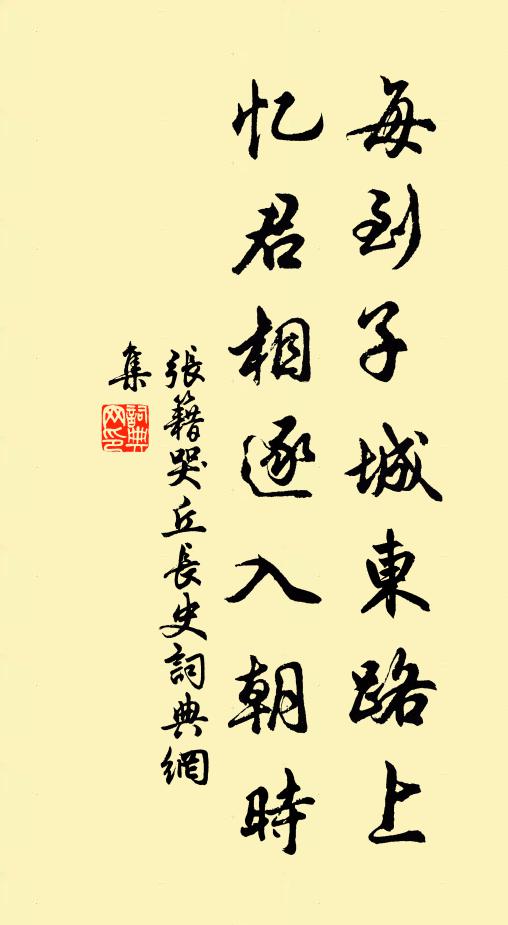 每到子城東路上
忆君相逐入朝時
張籍哭丘長史詞典網
集
詞典
网印